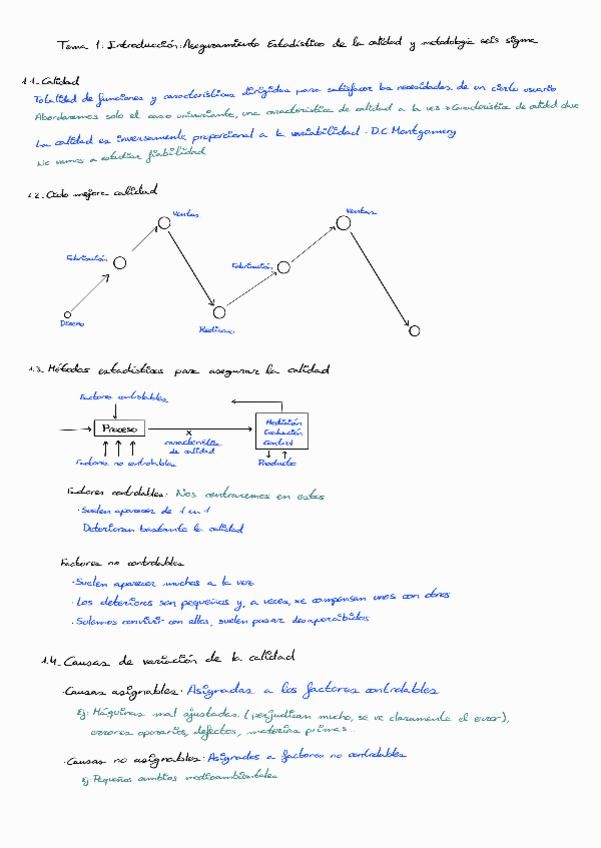 Tema 1: Introducción: Aseguramiento Estadístico de la calidad y metodología seis sigma
1.1- Calidad
Totalidad de funciones y características dirigidas para satisfacer las necesidades de un cierto usuario
Abordaremos solo el caso univariante, una característica de calidad a la vez → Característica de calidad clave
La calidad es inversamente proporcional a la variabilidad · D.C Montgomery
No vamos a estudiar fiabilidad
1.2- Ciclo mejora calidad
Ventas
Ventas
Fabricación
Fabricación
Diseño
Rediseño
1.3- Métodos estadísticos para asegurar la calidad
Factores controlables
Proceso
x
característica
de calidad
Medición
Evaluación
Control
Factores no controlables
Producto
Factores controlables · Nos centraremos en estos
· Suelen aparecer de 1 en 1
Deterioran bastante la calidad
Factores no controlables
· Suelen aparecer muchos a la vez
· Los deterioros son pequeños y, a veces, se compensan unos con otros
· Solemos convivir con ellos, suelen pasar desapercibidos
1.4- Causas de variación de la calidad
· Causas asignables · Asignadas a los factores controlables
Ej: Máquinas mal ajustadas (perjudican mucho, se ve claramente el error),
errores operarios, defectos, materias primas...
· Causas no asignables · Asignados a factores no controlables
Ej: Pequeños cambios medioambientales